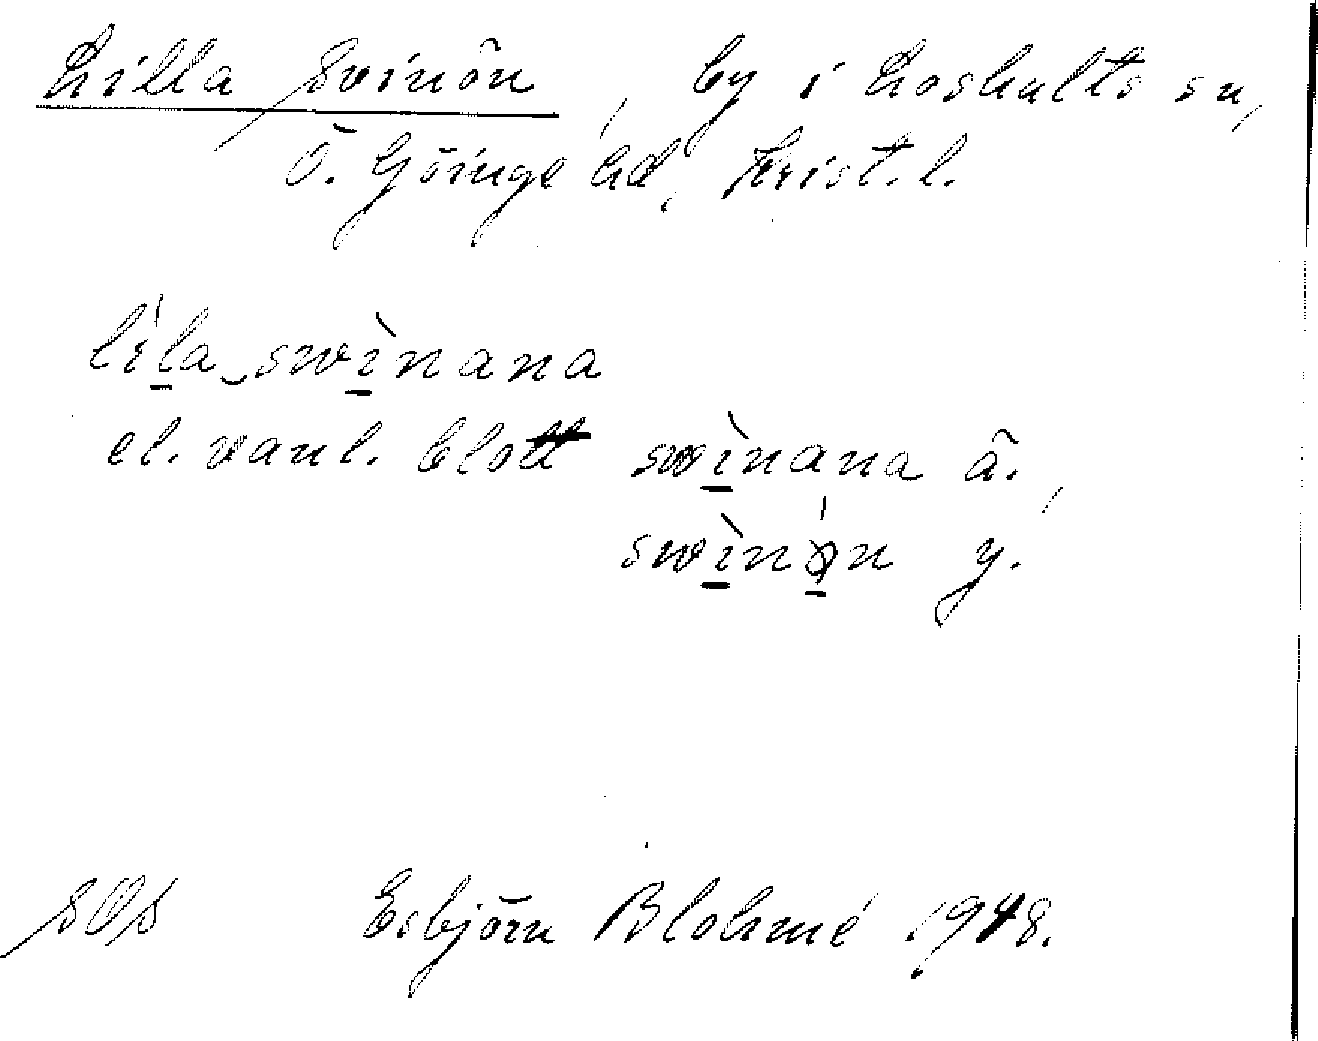 Lilla Svinön, by i Loshults sn,
Ö. Göinge hd, Krist. l.
lìla swìnana
el. vanl. blott swìnana ä.,
swìnön y.
SOs Esbjörn Blohmé 1948.